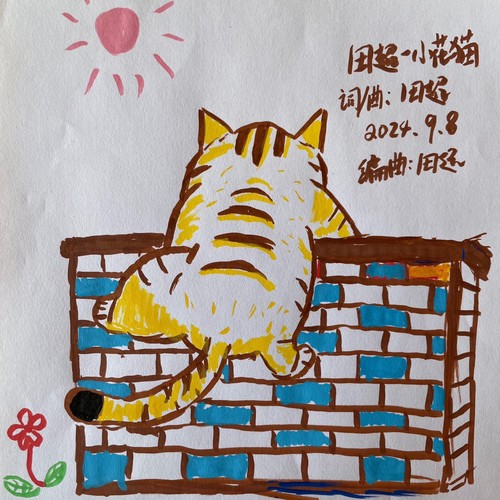 田超-小花猫
词/曲:田超
2024.9.8
编曲:田超